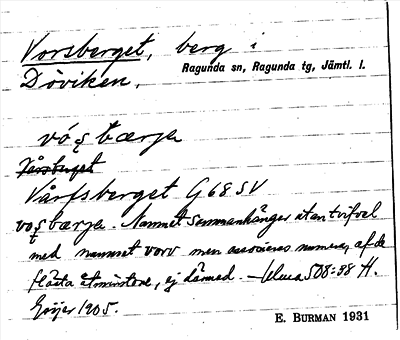 Vorsberget, berg i
Döviken. Ragunda sn, Ragunda tg, Jämtl. l.
vó ş bærja
Vårsberget
Vårfsberget G 68 SV
voş bærja. Namnet sammanhänger utan tvifvel
med namnet vorv men associeras numera, af de
flästa åtminstone, ej därmed. – Ulma 508:38 H.
Geijer 1905.
E. BURMAN 1931